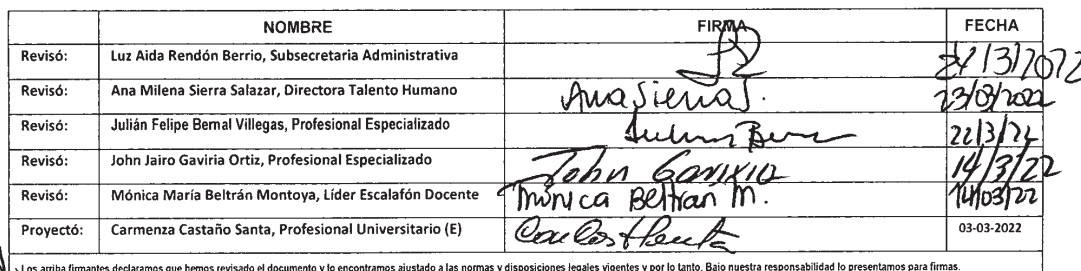 NOMBRE FIRMA FECHA
Revisó: Luz Aida Rendón Berrio, Subsecretaria Administrativa 24/3/2022
Revisó: Ana Milena Sierra Salazar, Directora Talento Humano Ana Sierra S. 23/03/2022
Revisó: Julián Felipe Bernal Villegas, Profesional Especializado 22/3/22
Revisó: John Jairo Gaviria Ortiz, Profesional Especializado John Gaviria 14/3/22
Revisó: Mónica María Beltrán Montoya, Líder Escalafón Docente Mónica Beltran M. 14/03/22
Proyectó: Carmenza Castaño Santa, Profesional Universitario (E) 03-03-2022
Los arriba firmantes declaramos que hemos revisado el documento y lo encontramos ajustado a las normas y disposiciones legales vigentes y por lo tanto. Bajo nuestra responsabilidad lo presentamos para firmas.